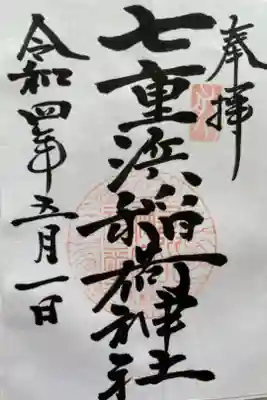 奉拝
七重浜稲荷神社
令和四年五月一日